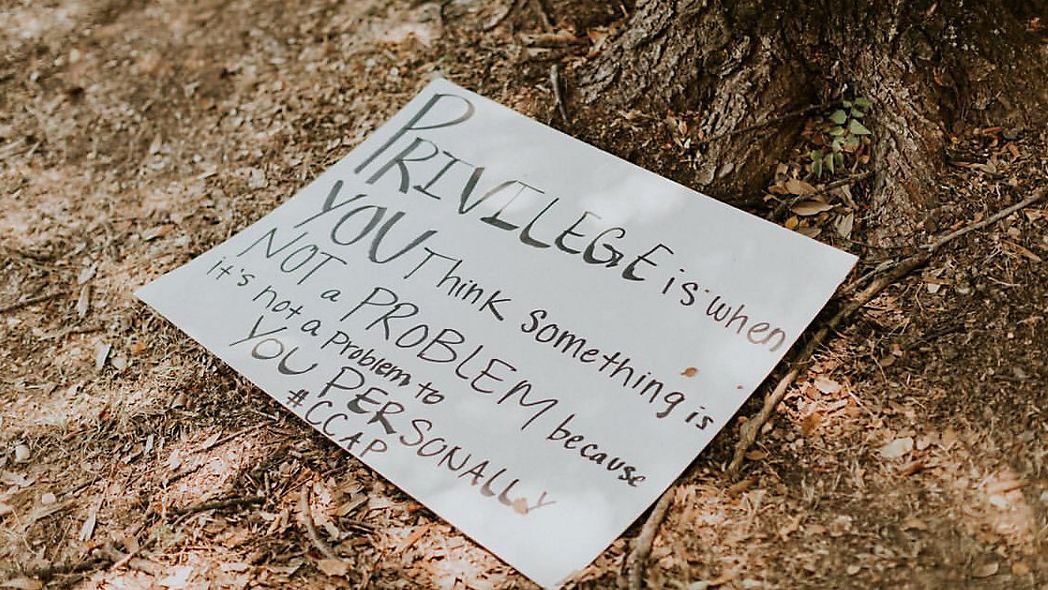 PRIVILEGE is when
YOU Think something is
NOT a PROBLEM because
it's not a Problem to
YOU PERSONALLY
#CCAP